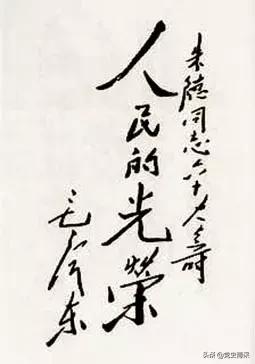 朱德同志六十大寿
人民的光荣
毛泽东
头条@党史博采